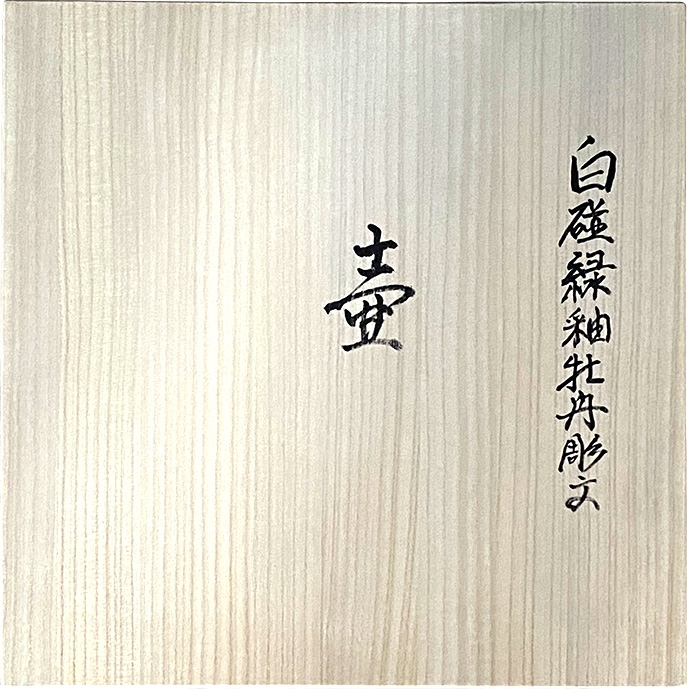 白磁緑釉牡丹彫文
壷